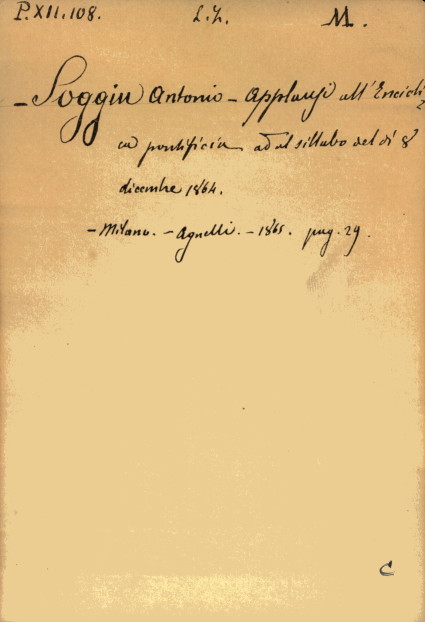 P.XII.108. L.Z. M.
- Soggiu Antonio - Applausi all'Encicli
ca pontificia ad al sillabo del dì 8
dicembre 1864.
- Milano. - Agnelli. - 1865. pag. 29.
C